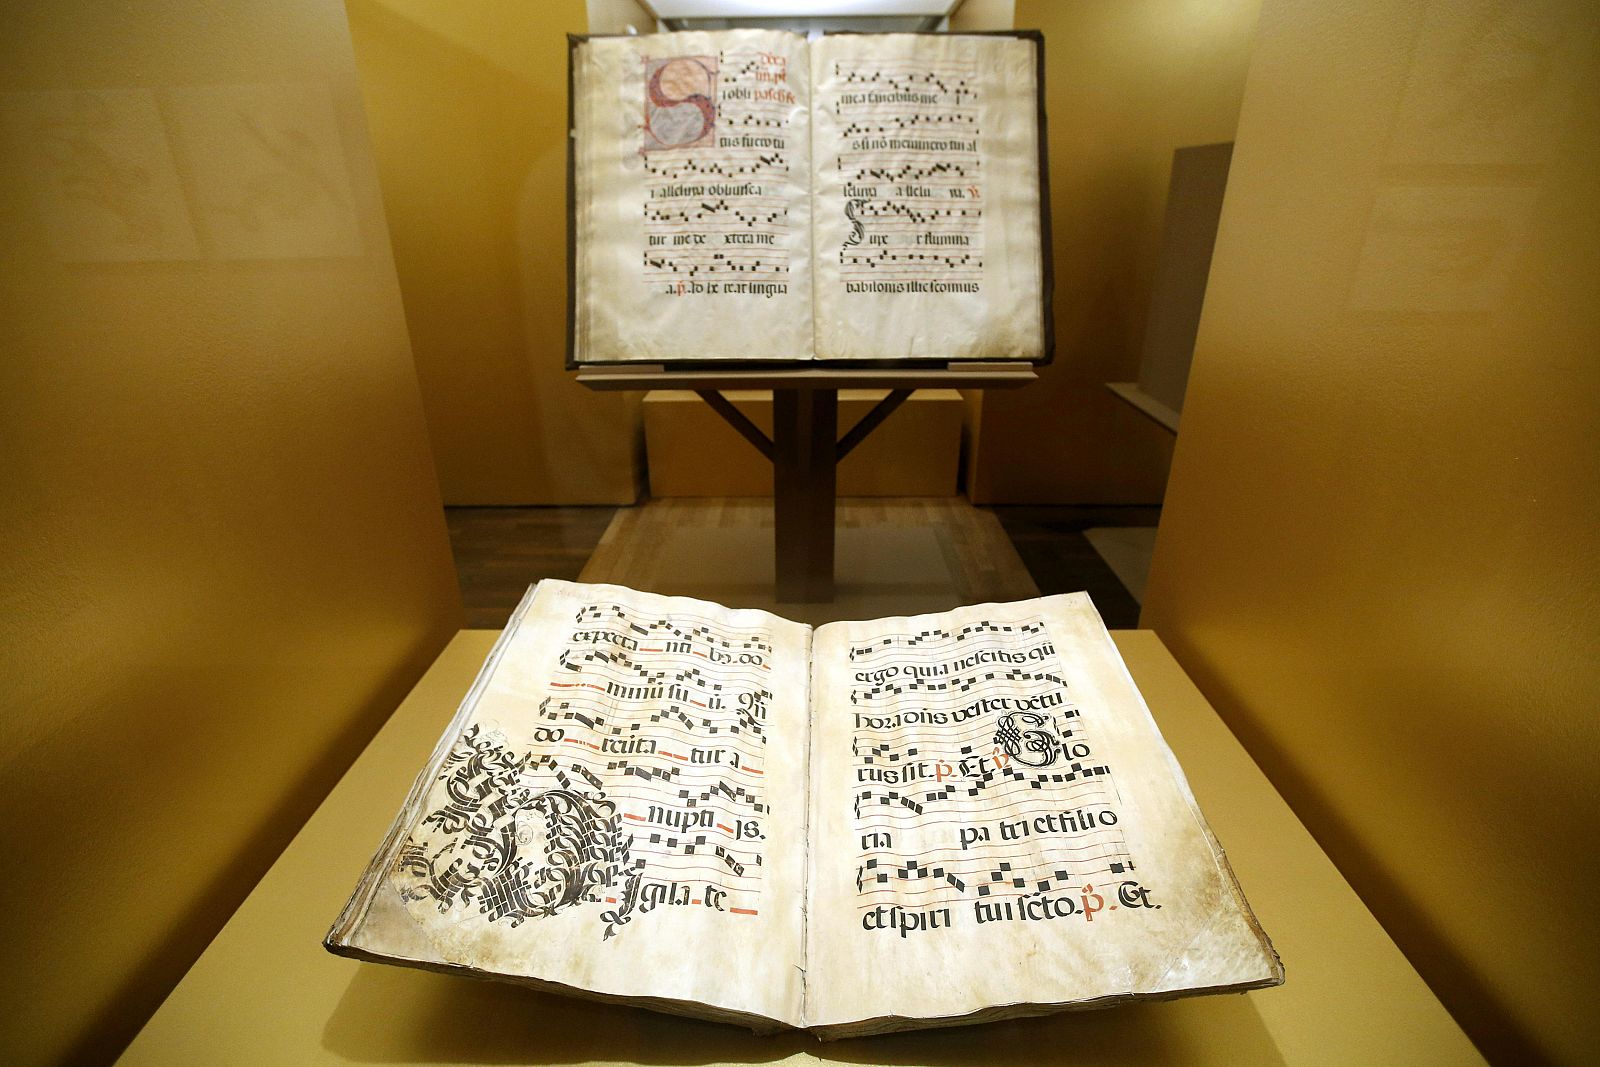 Si obli
tus fuero tu
i alleluya obliuisca
tur me de xtera me
a. p. ad he reat lingua
mea faucibus me
is si nõ meminero tui al
leluya allelu ya. V.
Supe r flumina
babilonis illic sedimus
expecta nti bo. do
minũ su ũ. Qñ
do reuita tur a
nupti js.
Vigila te
ergo quia nescitis qũ
hora dñs vester vẽtu
rus sit. p. Et. V. Glo
ria pa tri et filio
et spiri tui scto. p. Et.